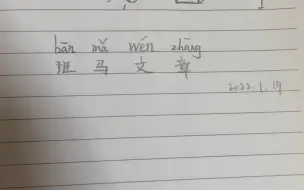 bān mǎ wén zhāng
班马文章
2022.1.19